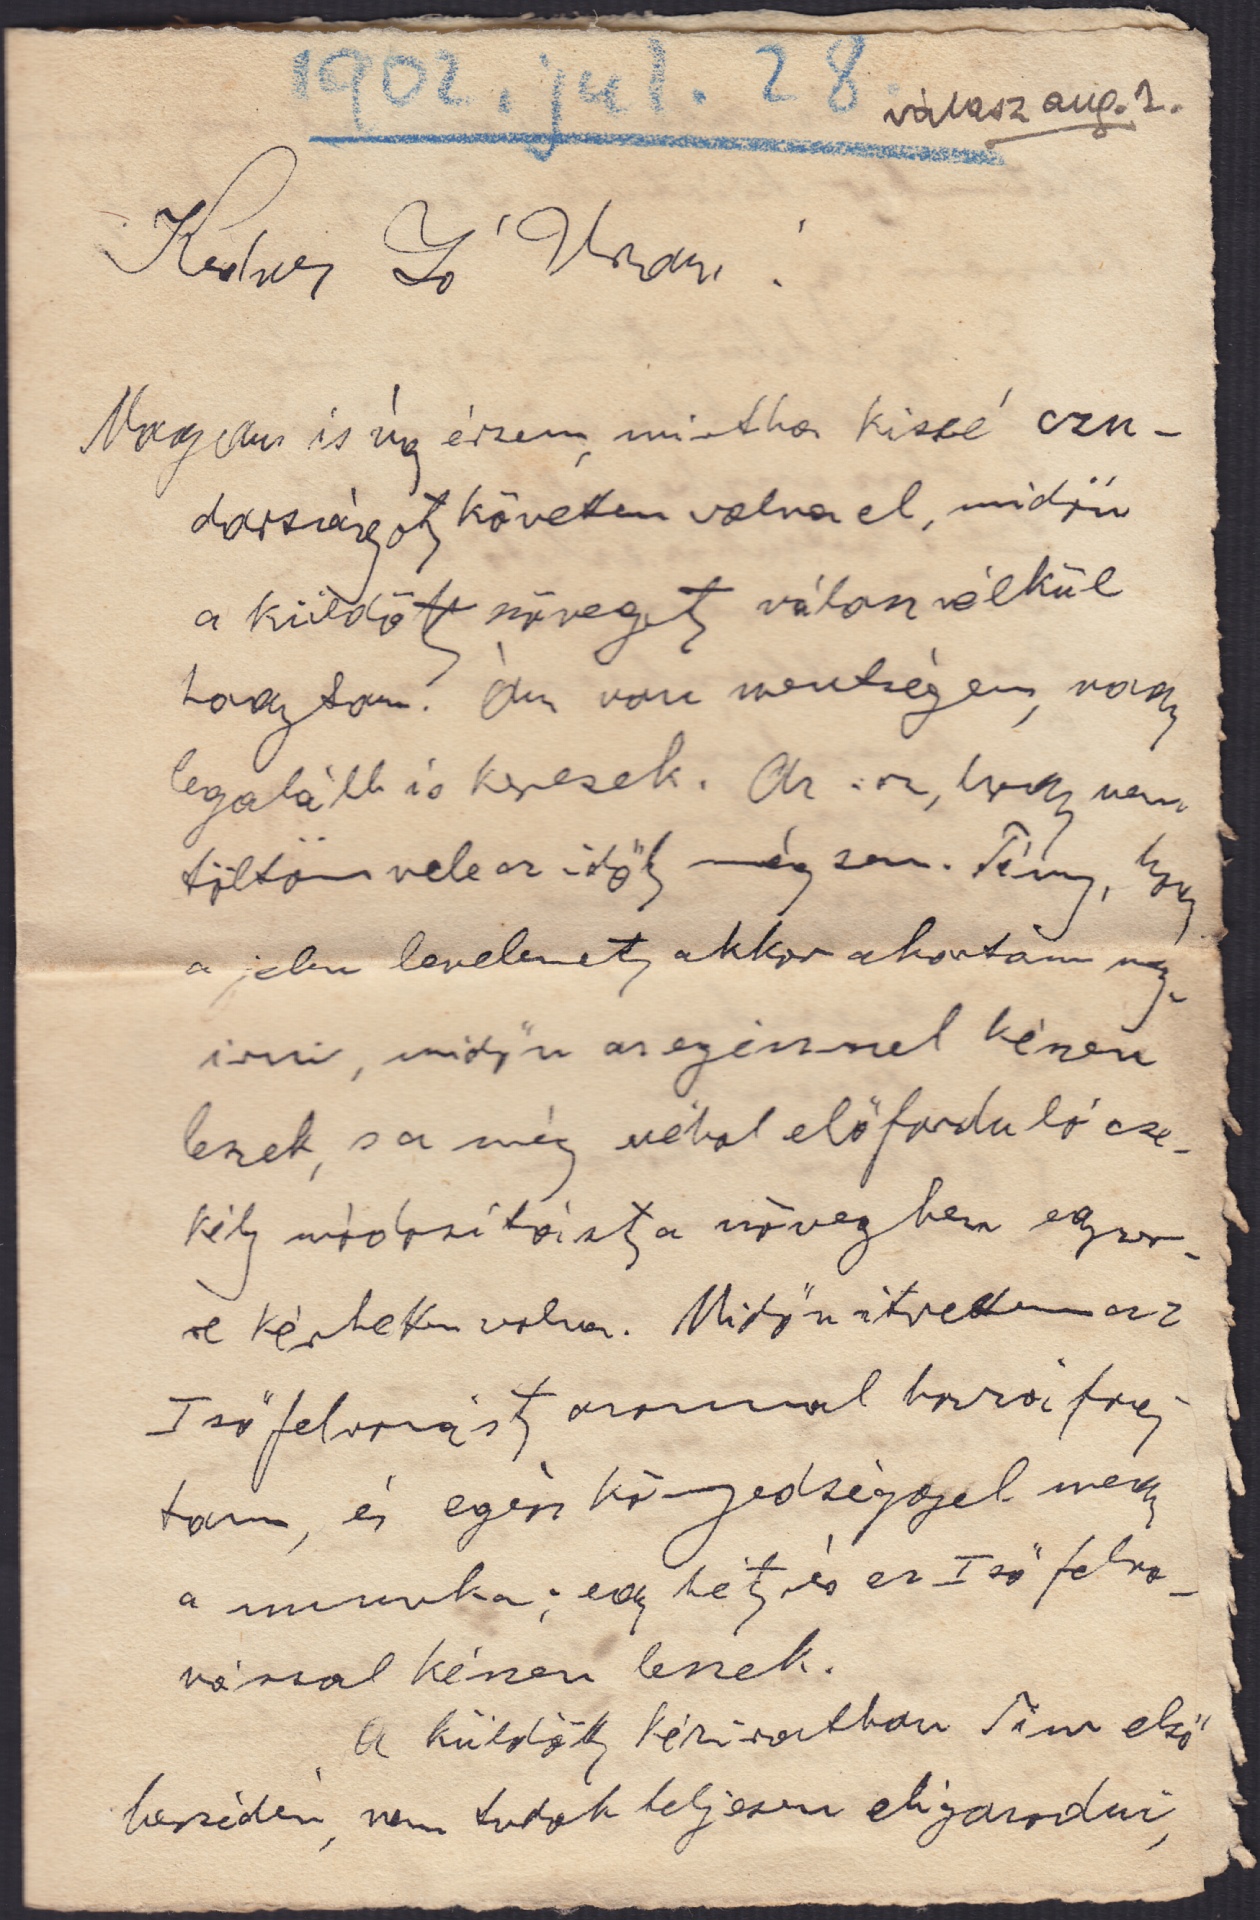 1902. jul. 28.
válasz aug. 1.
Kedves Jó Uram!
Magam is úg érzem, mintha kissé czu-
darságot követtem volna el, midőn
a küldött szöveget válasz nélkül
hagytam. Ám van mentségem, vagy
legalább is keresek. Az az, hogy nem
töltöm vele az időt mégsem. Tény, hogy
a jelen levelemet akkor akartam meg-
irni, midőn az egészszel készen
leszek, s a még néhol előforduló cse-
kély módosítást a szövegben egyszer-
re kérhettem volna. Midőn átvettem az
I ső felvonást azonnal hozzáfog-
tam, és egész könnyedséggel megy
a munka; egy hét és az I ső felvo-
nással készen leszek.
A küldött kéziratban Tim első
beszédén, nem tudok teljesen eligazodni,